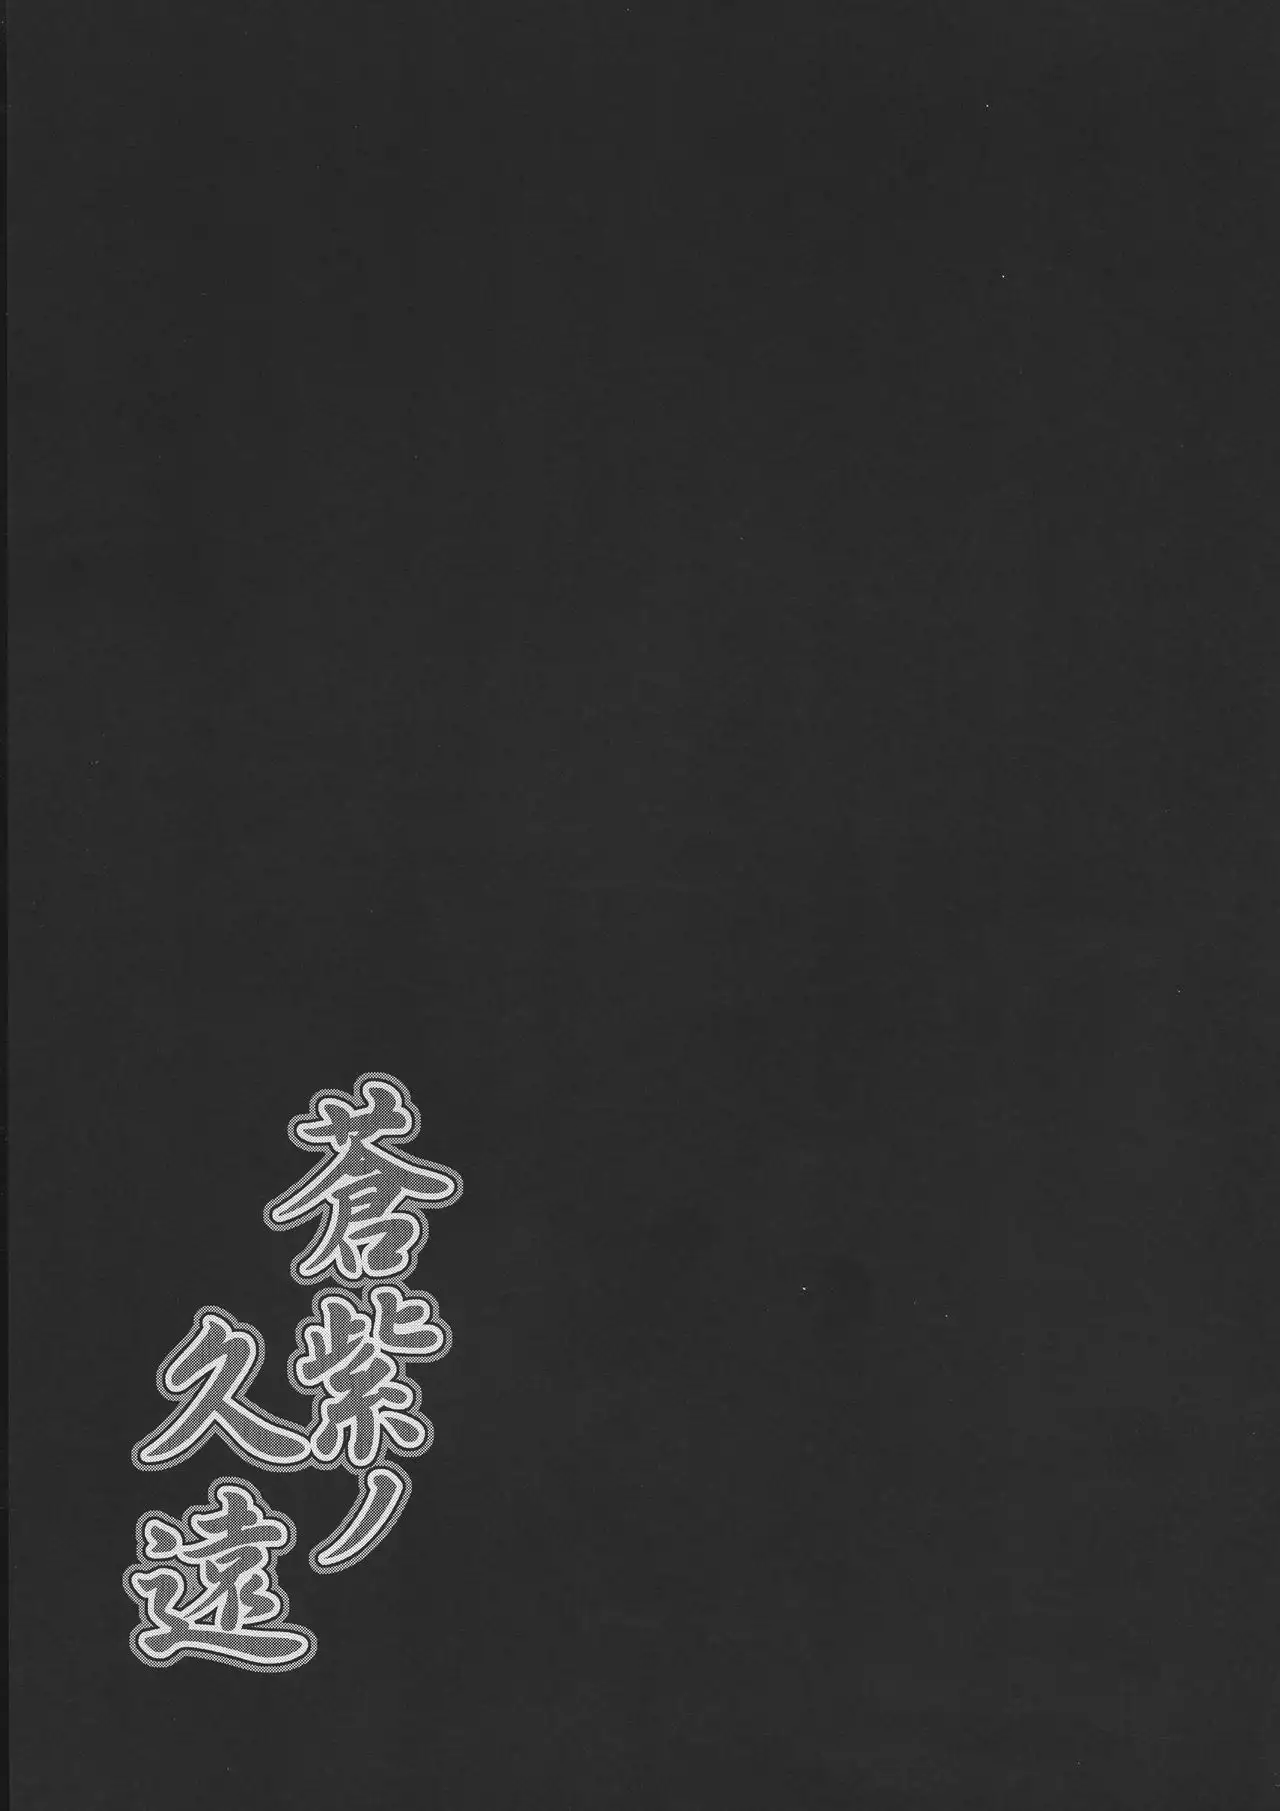 蒼紫ノ
久遠